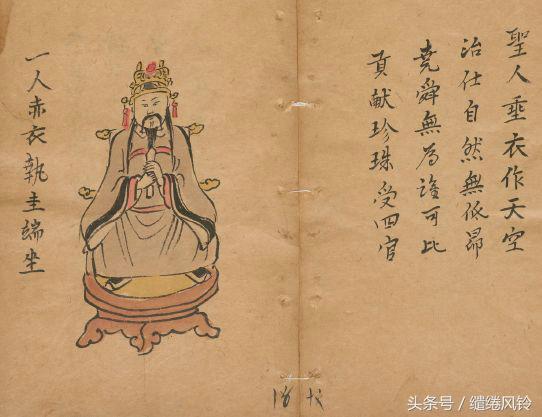 聖人垂衣作天空
治仕自然無低昂
堯舜無為誰可比
貢献珍珠受四官
一人赤衣執圭端坐
头条号 / 缱绻风铃